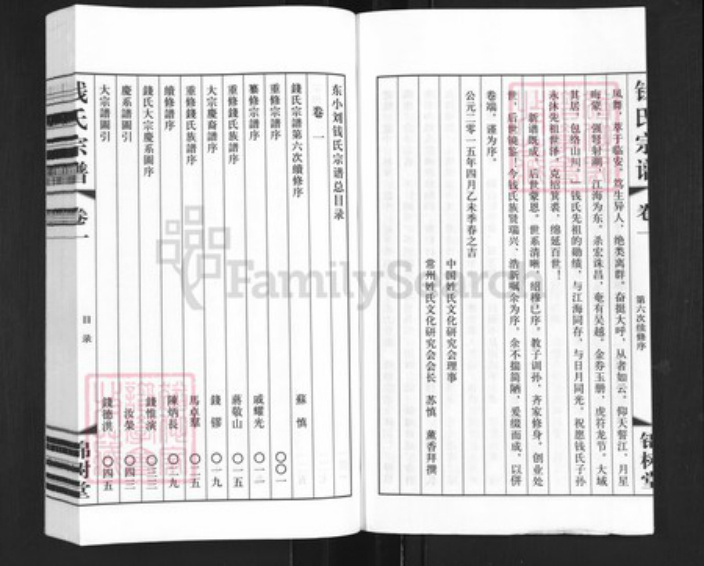 钱氏宗谱
卷一
第六次续修序
锦树堂
凤舞，萃于临安，笃生异人，绝类离群。奋挺大呼，从者如云，仰天誓江，月星
晦蒙。强弩射潮，江海为东。杀宏诛昌，奄有吴越。金券玉册，虎符龙节。大城
其居，包络山川。」钱氏先祖的勋绩，与江海同存，与日月同光，祝愿钱氏子孙
永沐先祖世泽，克绍箕裘，绵延百世！
新谱既成，后世蒙恩。世系清晰，绍穆已序。教子训孙，齐家修身，创业处
世，后世镜鉴。今钱氏族贤瑞兴、浩新嘱余为序，余不揣简陋，爰缀而成，以併
卷端，谨为序。
公元二零一五年四月乙未季春之吉
中国姓氏文化研究会理事
常州姓氏文化研究会会长 苏慎 薰香拜撰
东小刘钱氏宗谱总目录
卷一
錢氏宗譜第六次續修序 蘇慎 〇〇一
重修宗譜序 戚耀光 〇一一
纂修宗譜序 蔣敬山 〇一五
重修錢氏族譜序
大宗慶裔譜序 錢鏐 〇一九
重修錢氏族譜序 馬卓羣 〇二五
續修譜序 陳炳長 〇二九
錢氏大宗慶系圖序 錢惟演 〇三三
慶系譜圖引 汝榮 〇四三
大宗譜圖引 錢德洪 〇四五
钱氏宗谱
卷一
目录
锦树堂
FamilySearch